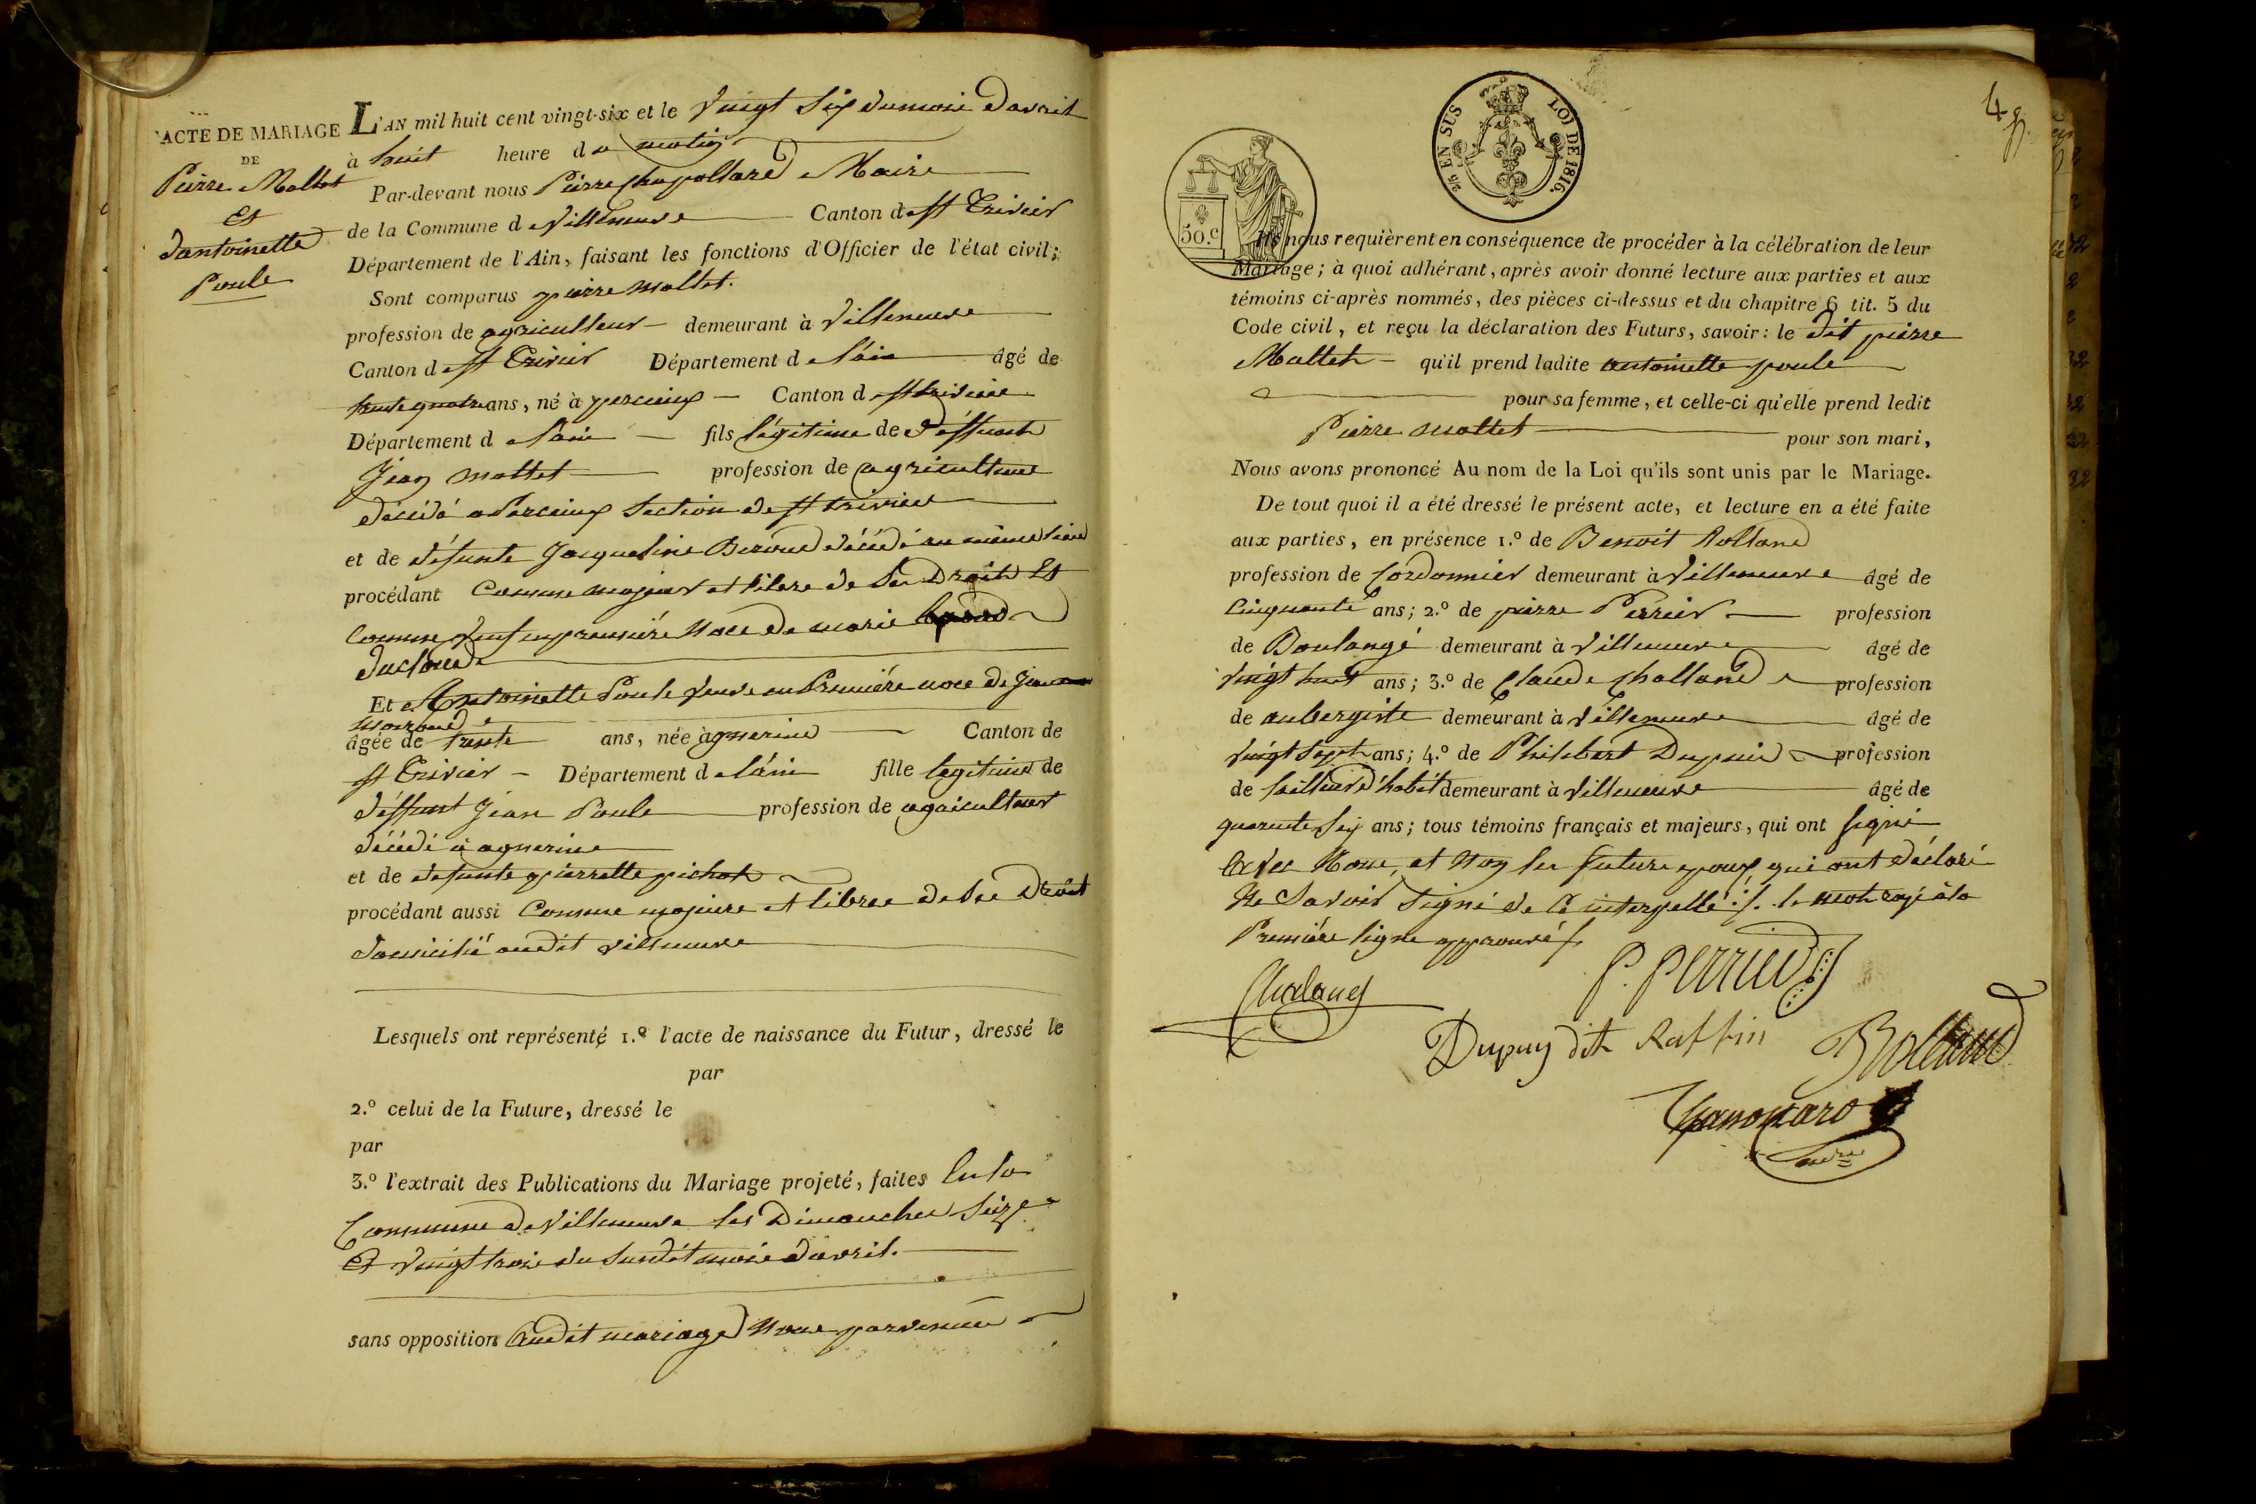 ACTE DE MARIAGE
DE
Pierre Mollet
Et
dantoinette
Poule
L'AN mil huit cent vingt-six et le vingt six du mois davril
à huit heure du matin
Par-devant nous Pierre Chapollard Maire
de la Commune d Villeneuve Canton d St Trivier
Département de l'Ain, faisant les fonctions d'Officier de l'état civil;
Sont comparus pierre mollet.
profession de agriculteur demeurant à Villeneuve
Canton d St Trivier Département d l'ain âgé de
trente quatre ans, né à percieux Canton d St trivier
Département d l'ain fils légitime de déffunt
Jean mollet profession de agriculteur
décédé a Percieux Section de St trivier
et de défunte Jacqueline Beroud décédé au même lieu
procédant Comme majeur et libre de ses Droits Et
Comme veuf en première noce de marie
ducloud
Et Antoinette Poule veuve en Première noce de Jean
âgée de trente ans, née à agnerins Canton de
St Trivier Département d l'ain fille legitime de
déffunt Jean Poule profession de agriculteur
décédé à agnerins
et de defunte pierrette pichot
procédant aussi Comme majeure et libre de ses Droit
domicilié audit villeneuve
Lesquels ont représenté 1.º l'acte de naissance du Futur, dressé le
par
2.º celui de la Future, dressé le
par
3.º l'extrait des Publications du Mariage projeté, faites En la
Commune de Villeneuve les Dimanches Seize
Et vingt trois du Susdit mois d'avril.
sans opposition audit mariage nous parvenue
4
50.C
2/5 EN SUS LOI DE 1816.
Ils nous requièrent en conséquence de procéder à la célébration de leur
Mariage; à quoi adhérant, après avoir donné lecture aux parties et aux
témoins ci-après nommés, des pièces ci-dessus et du chapitre 6 tit. 5 du
Code civil, et reçu la déclaration des Futurs, savoir: le dit pierre
Mollet qu'il prend ladite antoinette poule
pour sa femme, et celle-ci qu'elle prend ledit
Pierre mollet pour son mari,
Nous avons prononcé Au nom de la Loi qu'ils sont unis par le Mariage.
De tout quoi il a été dressé le présent acte, et lecture en a été faite
aux parties, en présence 1.º de Benoit Rolland
profession de Cordonnier demeurant à Villeneuve âgé de
Cinquante ans; 2.º de pierre Perrier profession
de Boulangé demeurant à Villeneuve âgé de
vingt huit ans; 3.º de Claude Challand profession
de aubergiste demeurant à Villeneuve âgé de
vingt sept ans; 4.º de Philibert Dupuis profession
de tailleur d'habit demeurant à Villeneuve âgé de
quarente six ans; tous témoins français et majeurs, qui ont signé
avec Nous, et non les future epoux qui ont déclaré
Ne Savoir Signé de Ce interpellé ./. le mot rayé à la
Première ligne approuvé /.
P. Perrier
Dupuy dit Raffin
Rolland